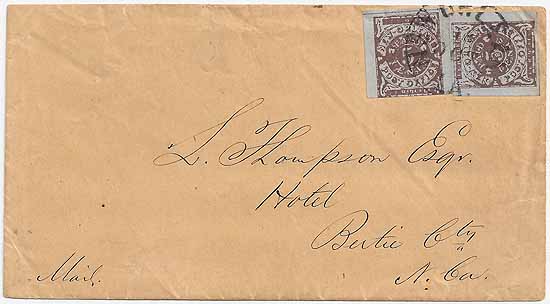 L. Thompson Esqr.
Hotel
Bertie Cty
N. Ca.
Mail.